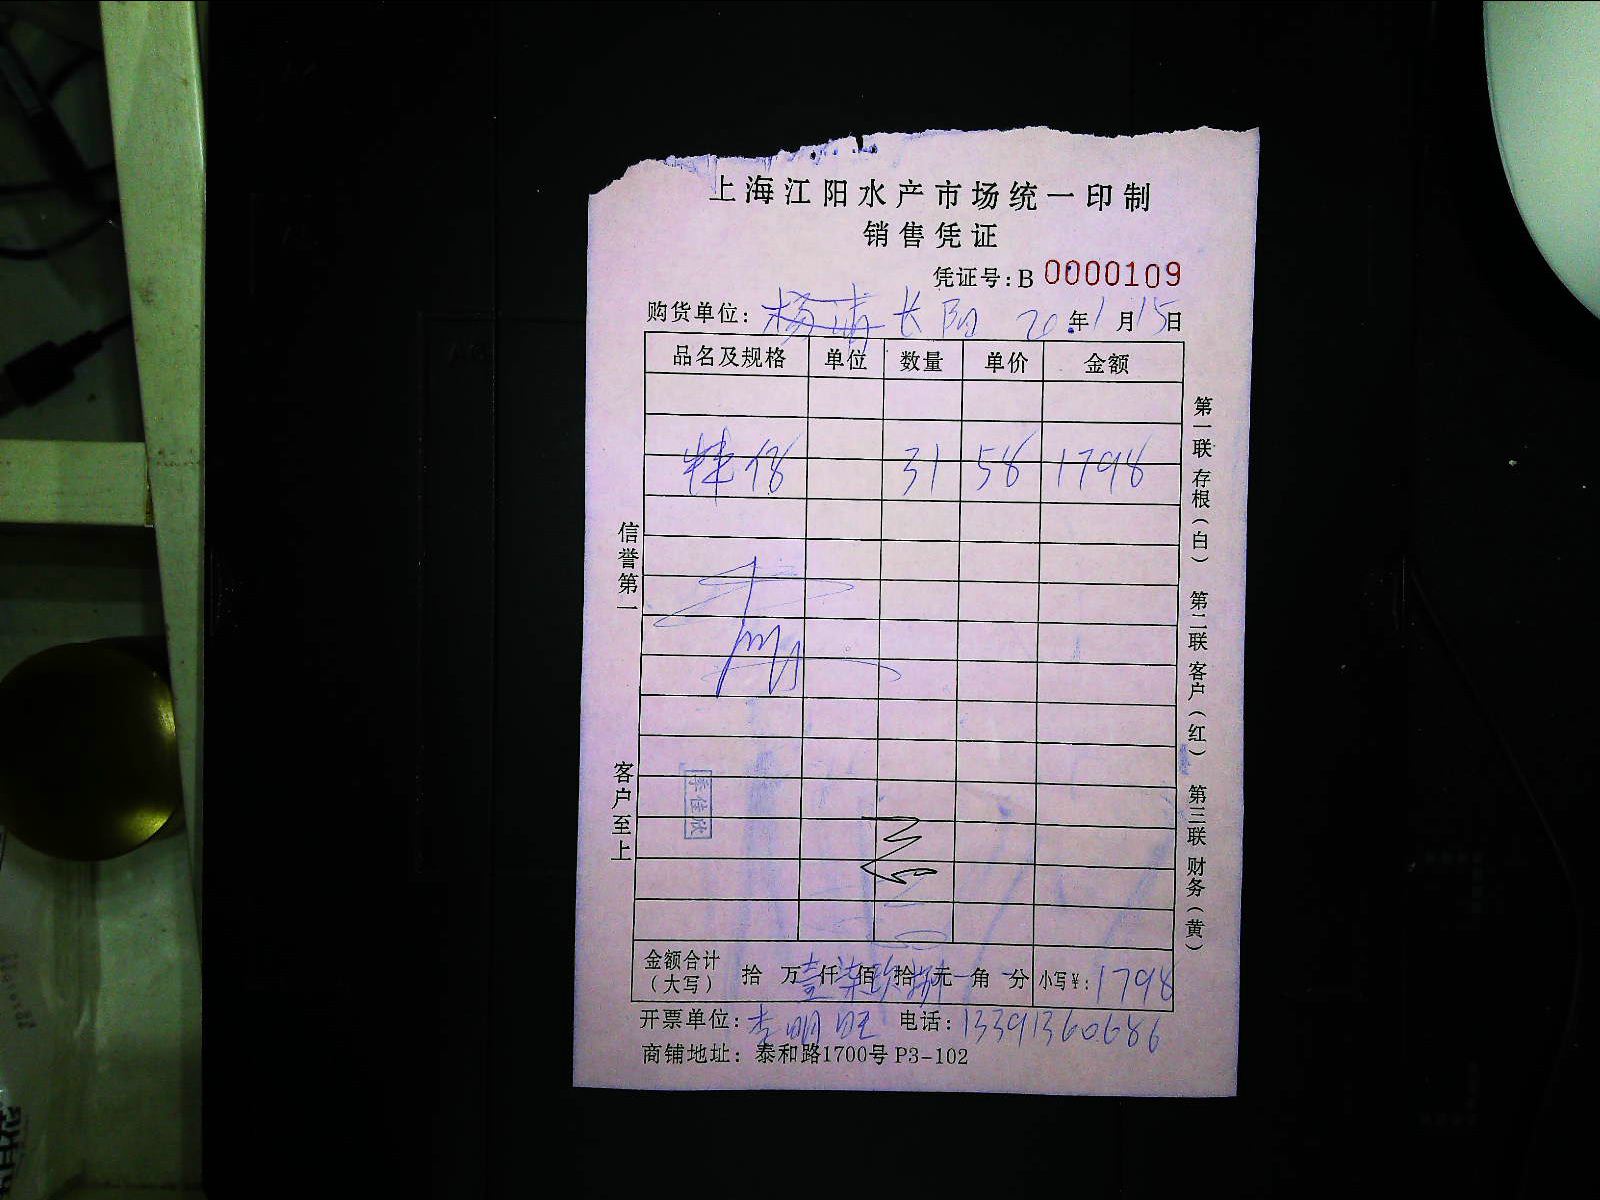 上海江阳水产市场统一印制
销售凭证
凭证号:B 0000109
购货单位: 杨浦长阳 20年1月15日
品名及规格 单位 数量 单价 金额
31 58 1798
信誉第一
客户至上
第一联 存根(白) 第二联 客户(红) 第三联 财务(黄)
金额合计(大写) 拾 万壹仟柒佰玖拾捌元 角 分 小写¥: 1798
开票单位: 李明旺 电话: 13391360686
商铺地址: 泰和路1700号 P3-102